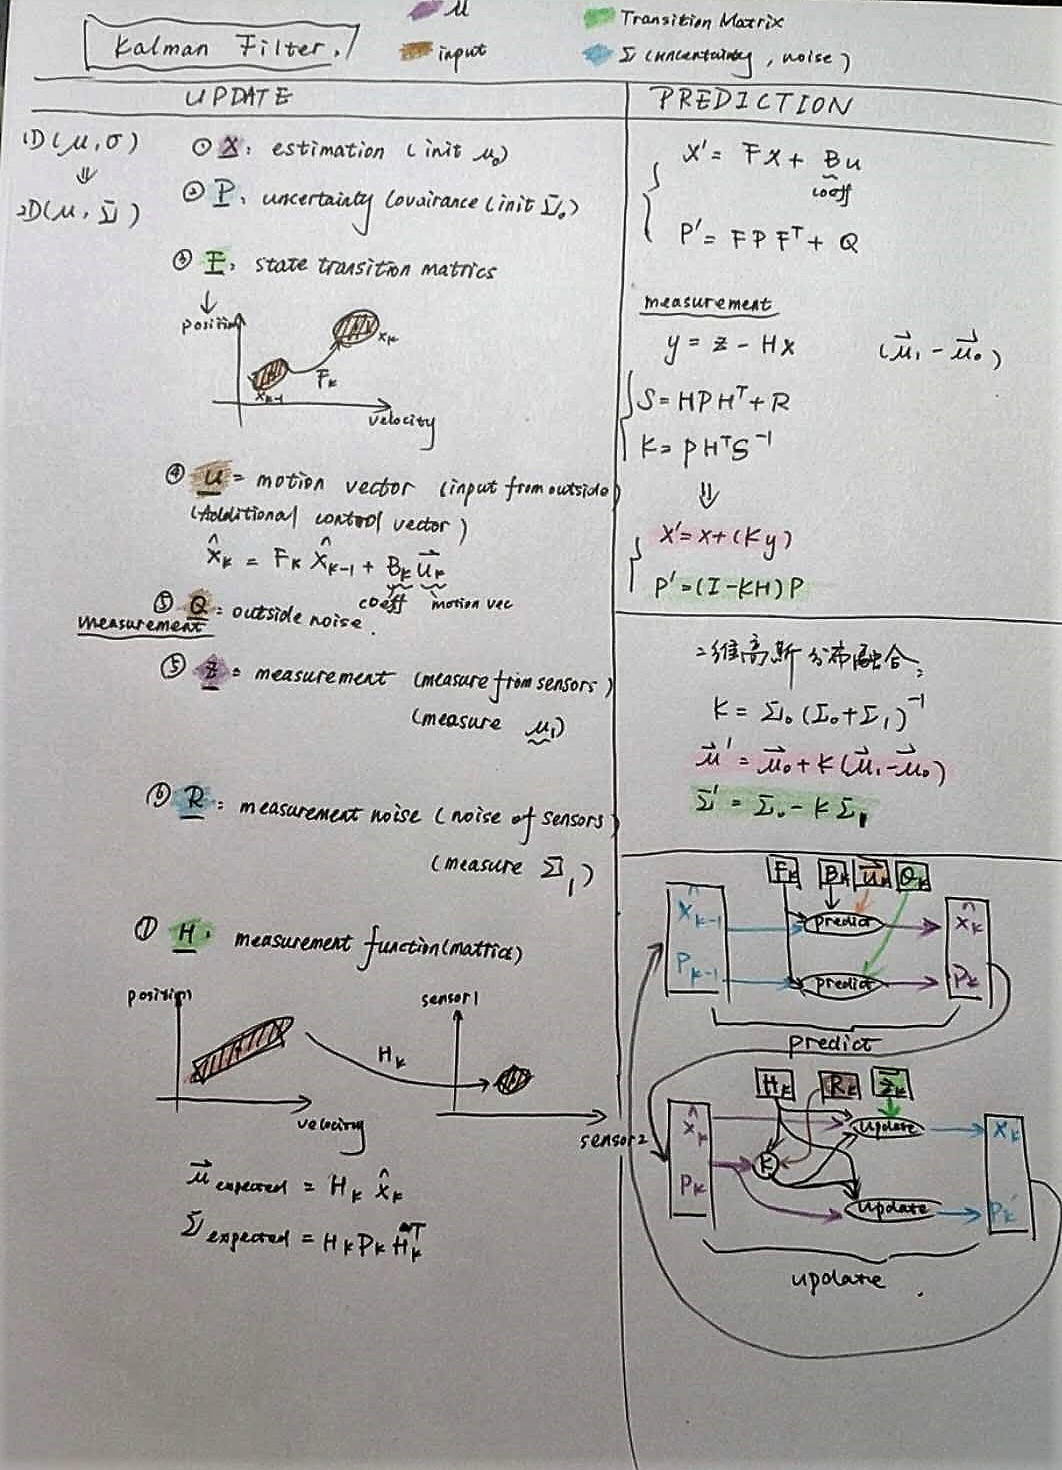 Kalman Filter.
μ
input
Transition Matrix
Σ (uncertainty, noise)
UPDATE
1D(μ, σ)
⇓
2D(μ, Σ)
① X: estimation (init μ₀)
② P: uncertainty covairance (init Σ₀)
③ F: state transition matrics
↓
position
xₖ
Fₖ
xₖ₋₁
velocity
④ u = motion vector (input from outside)
(Additional control vector)
x̂ₖ = Fₖ x̂ₖ₋₁ + Bₖ u⃗ₖ
coeff motion vec
⑤ Q = outside noise.
measurement
⑤ Z = measurement (measure from sensors)
(measure μ₁)
⑥ R: measurement noise (noise of sensors)
(measure Σ₁)
⑦ H: measurement function(matrics)
position
velocity
Hₖ
sensor1
sensor2
μ⃗ expected = Hₖ x̂ₖ
Σ expected = Hₖ Pₖ Hₖᵀ
PREDICTION
X' = FX + Bu
coeff
P' = FPFᵀ + Q
measurement
y = z - Hx (μ⃗₁ - μ⃗₀)
S = HPHᵀ + R
K = PHᵀS⁻¹
⇓
X' = x + (Ky)
P' = (I - KH)P
二维高斯分布融合:
K = Σ₀(Σ₀+Σ₁)⁻¹
μ⃗' = μ⃗₀ + K(μ⃗₁ - μ⃗₀)
Σ' = Σ₀ - KΣ₁
Fₖ Bₖ u⃗ₖ Qₖ
x̂ₖ₋₁ predict x̂ₖ
Pₖ₋₁ predict Pₖ
predict
Hₖ Rₖ z⃗ₖ
x̂ₖ update xₖ
K
Pₖ update Pₖ'
update